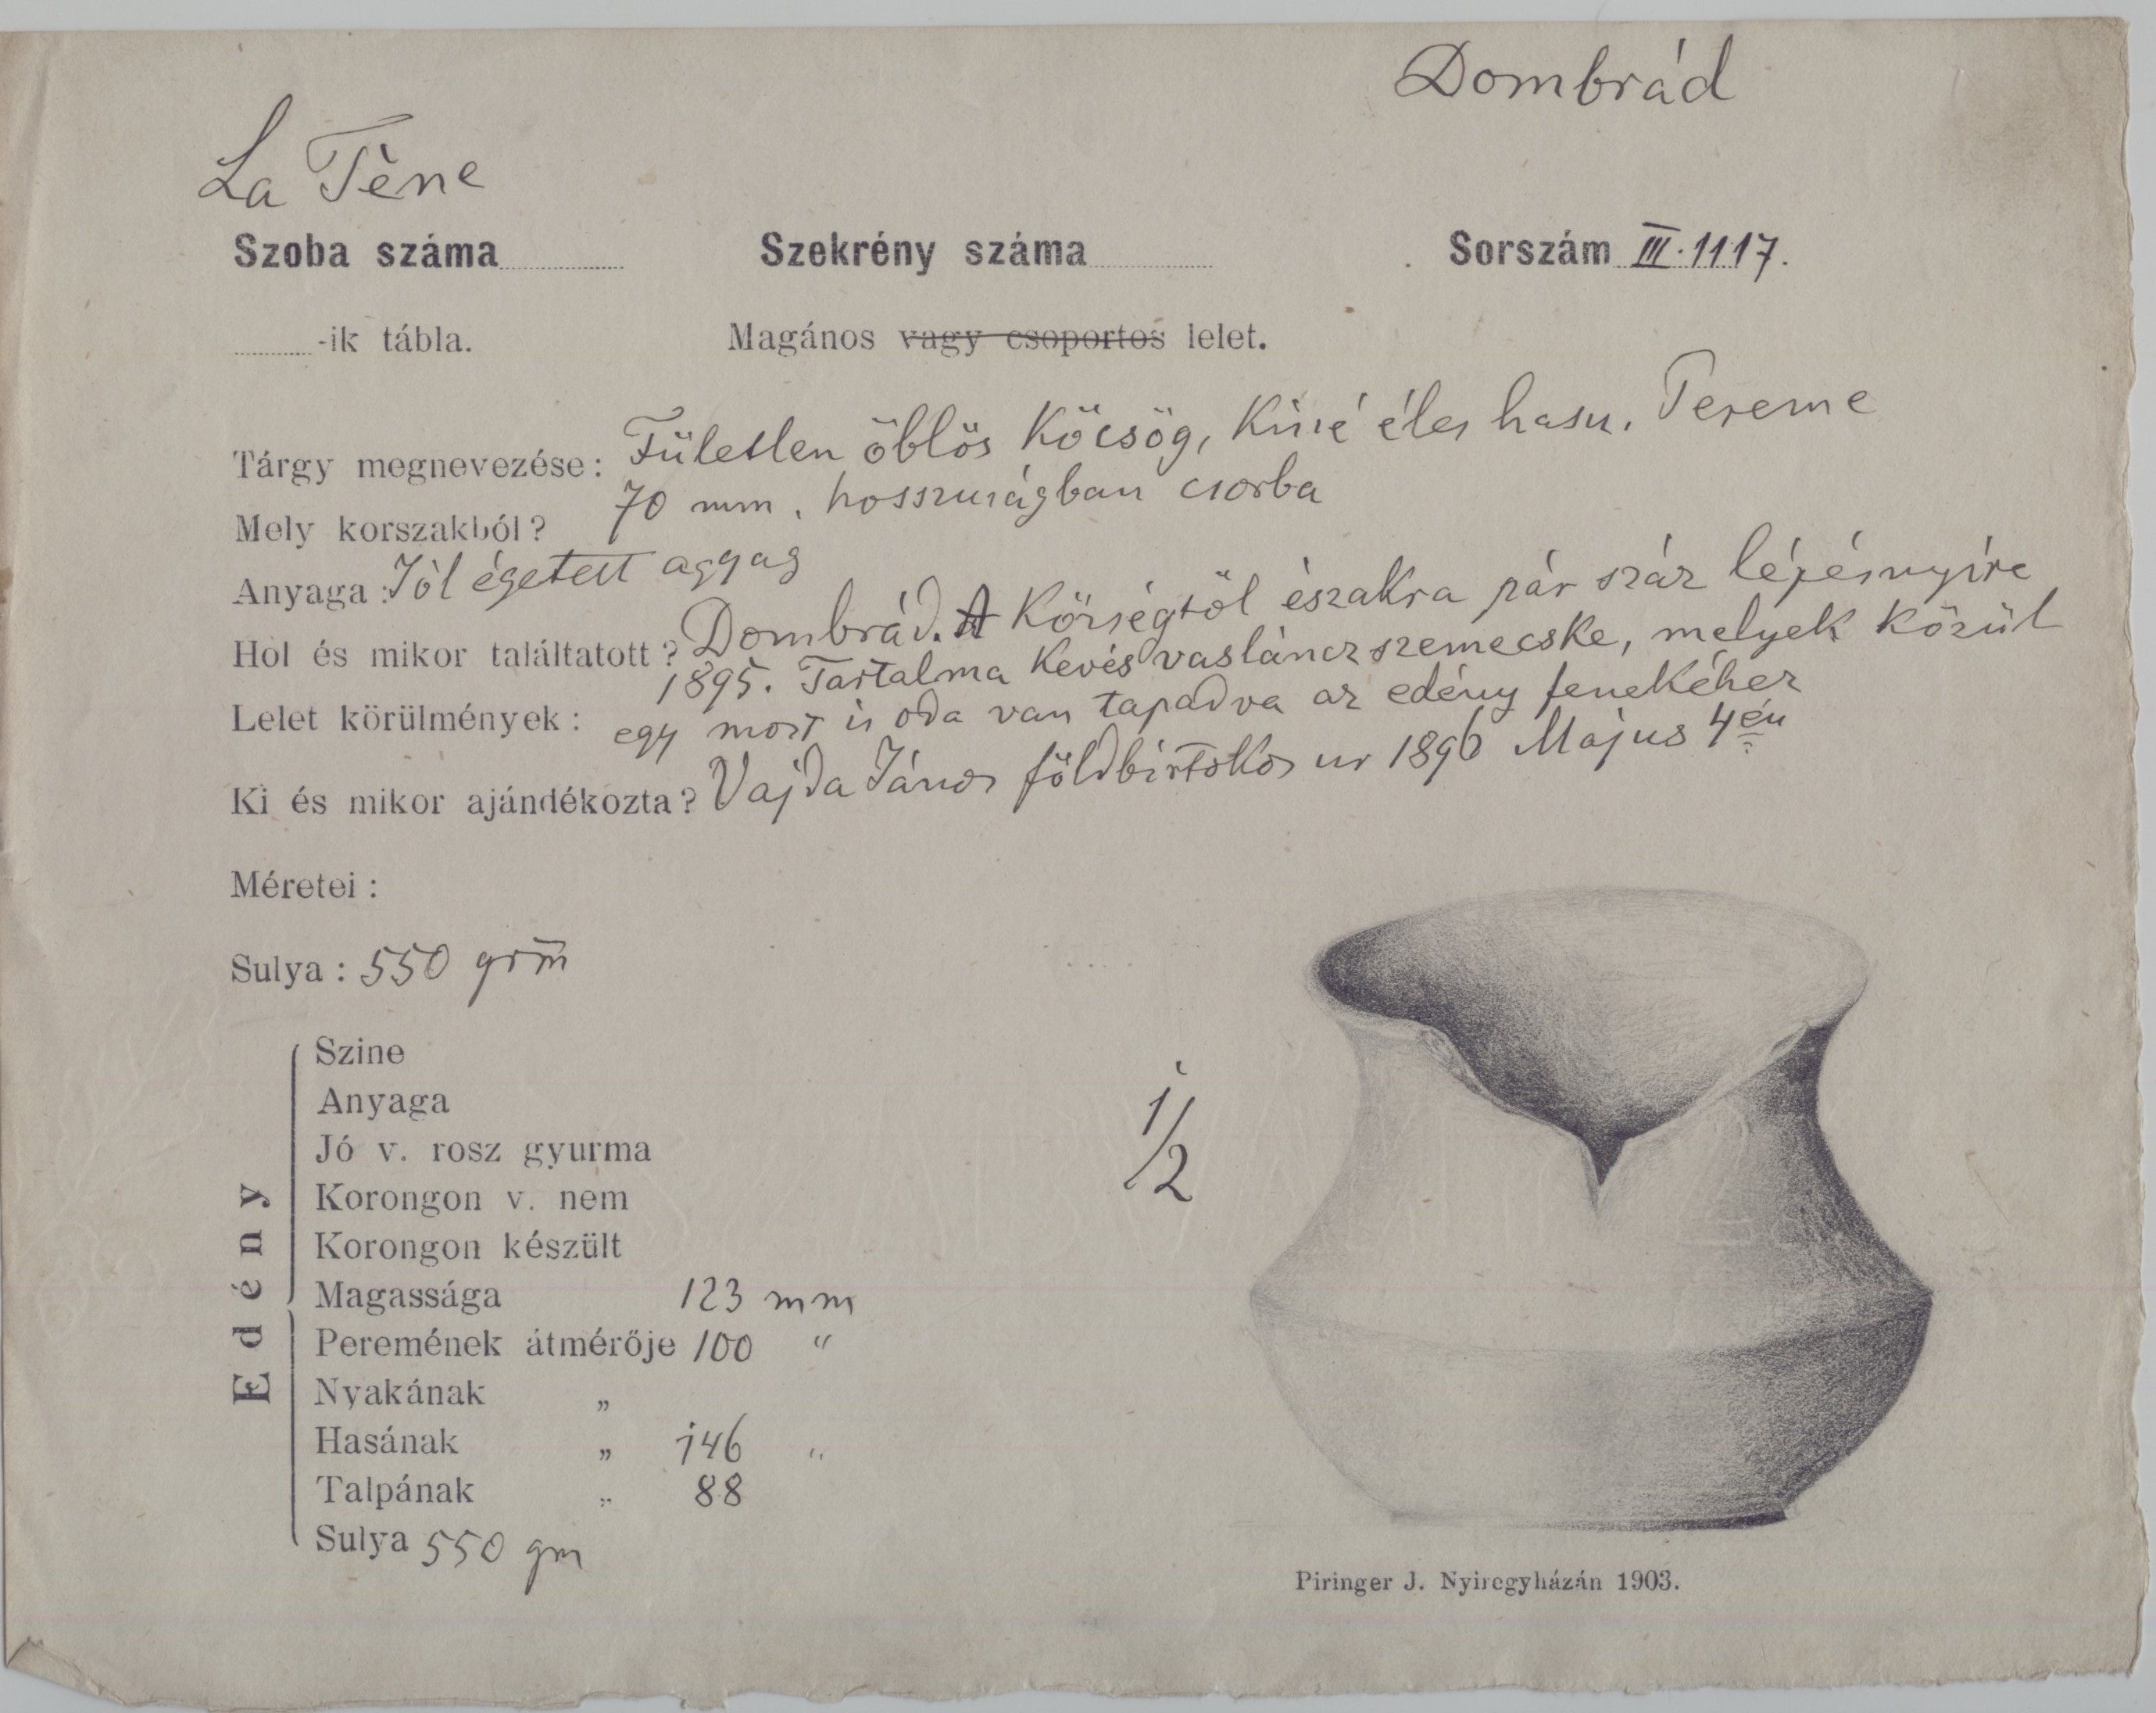 Dombrád
La Tène
Szoba száma Szekrény száma Sorszám III. 1117.
-ik tábla. Magános vagy csoportos lelet.
Tárgy megnevezése: Fületlen öblös Köcsög, éles hasu. Pereme
70 mm. hosszuságban csorba
Mely korszakból?
Anyaga: Jól égetett agyag
Hol és mikor találtatott? Dombrád. A Községtöl északra pár száz lépésnyire
1895. Tartalma Kevés vasláncz szemecske, melyek közül
Lelet körülmények: egy most is oda van tapadva az edény fenekéhez
Ki és mikor ajándékozta? Vajda János földbirtokos ur 1896 Május 4én
Méretei:
Sulya: 550 grm
Edény
Szine
Anyaga
Jó v. rosz gyurma
Korongon v. nem
Korongon készült
Magassága 123 mm
Peremének átmérője 100 "
Nyakának "
Hasának " 146 "
Talpának " 88
Sulya 550 gm
1/2
Piringer J. Nyiregyházán 1903.